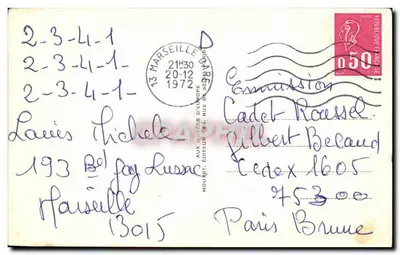 2-3-4-1
2-3-4-1
2-3-4-1-
Louis Michele
193 Bd Gay Lussac
Marseille
13015
13 MARSEILLE GARE
21H30
20-12
1972
0,50
Emission
Cadet Roussel
Gilbert Becaud
Cedex 1605
75300
Paris Brune